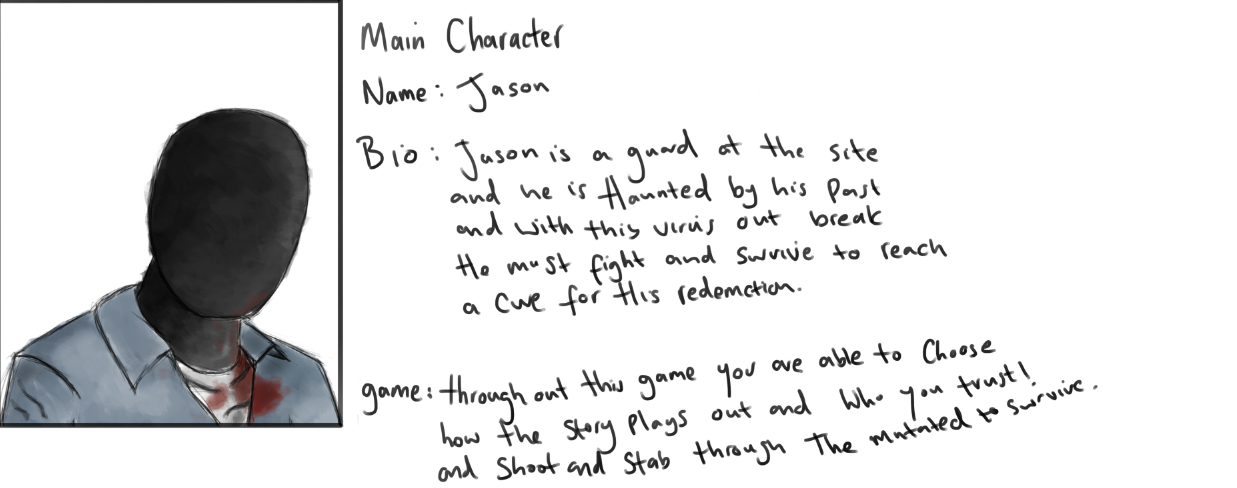 Main Character
Name: Jason
Bio: Jason is a guard at the site
and he is Haunted by his Past
and with this virus out break
He must fight and survive to reach
a cure for His redemction.
game: through out this game you are able to Choose
how the Story Plays out and who you trust!
and Shoot and Stab through The mutated to survive.